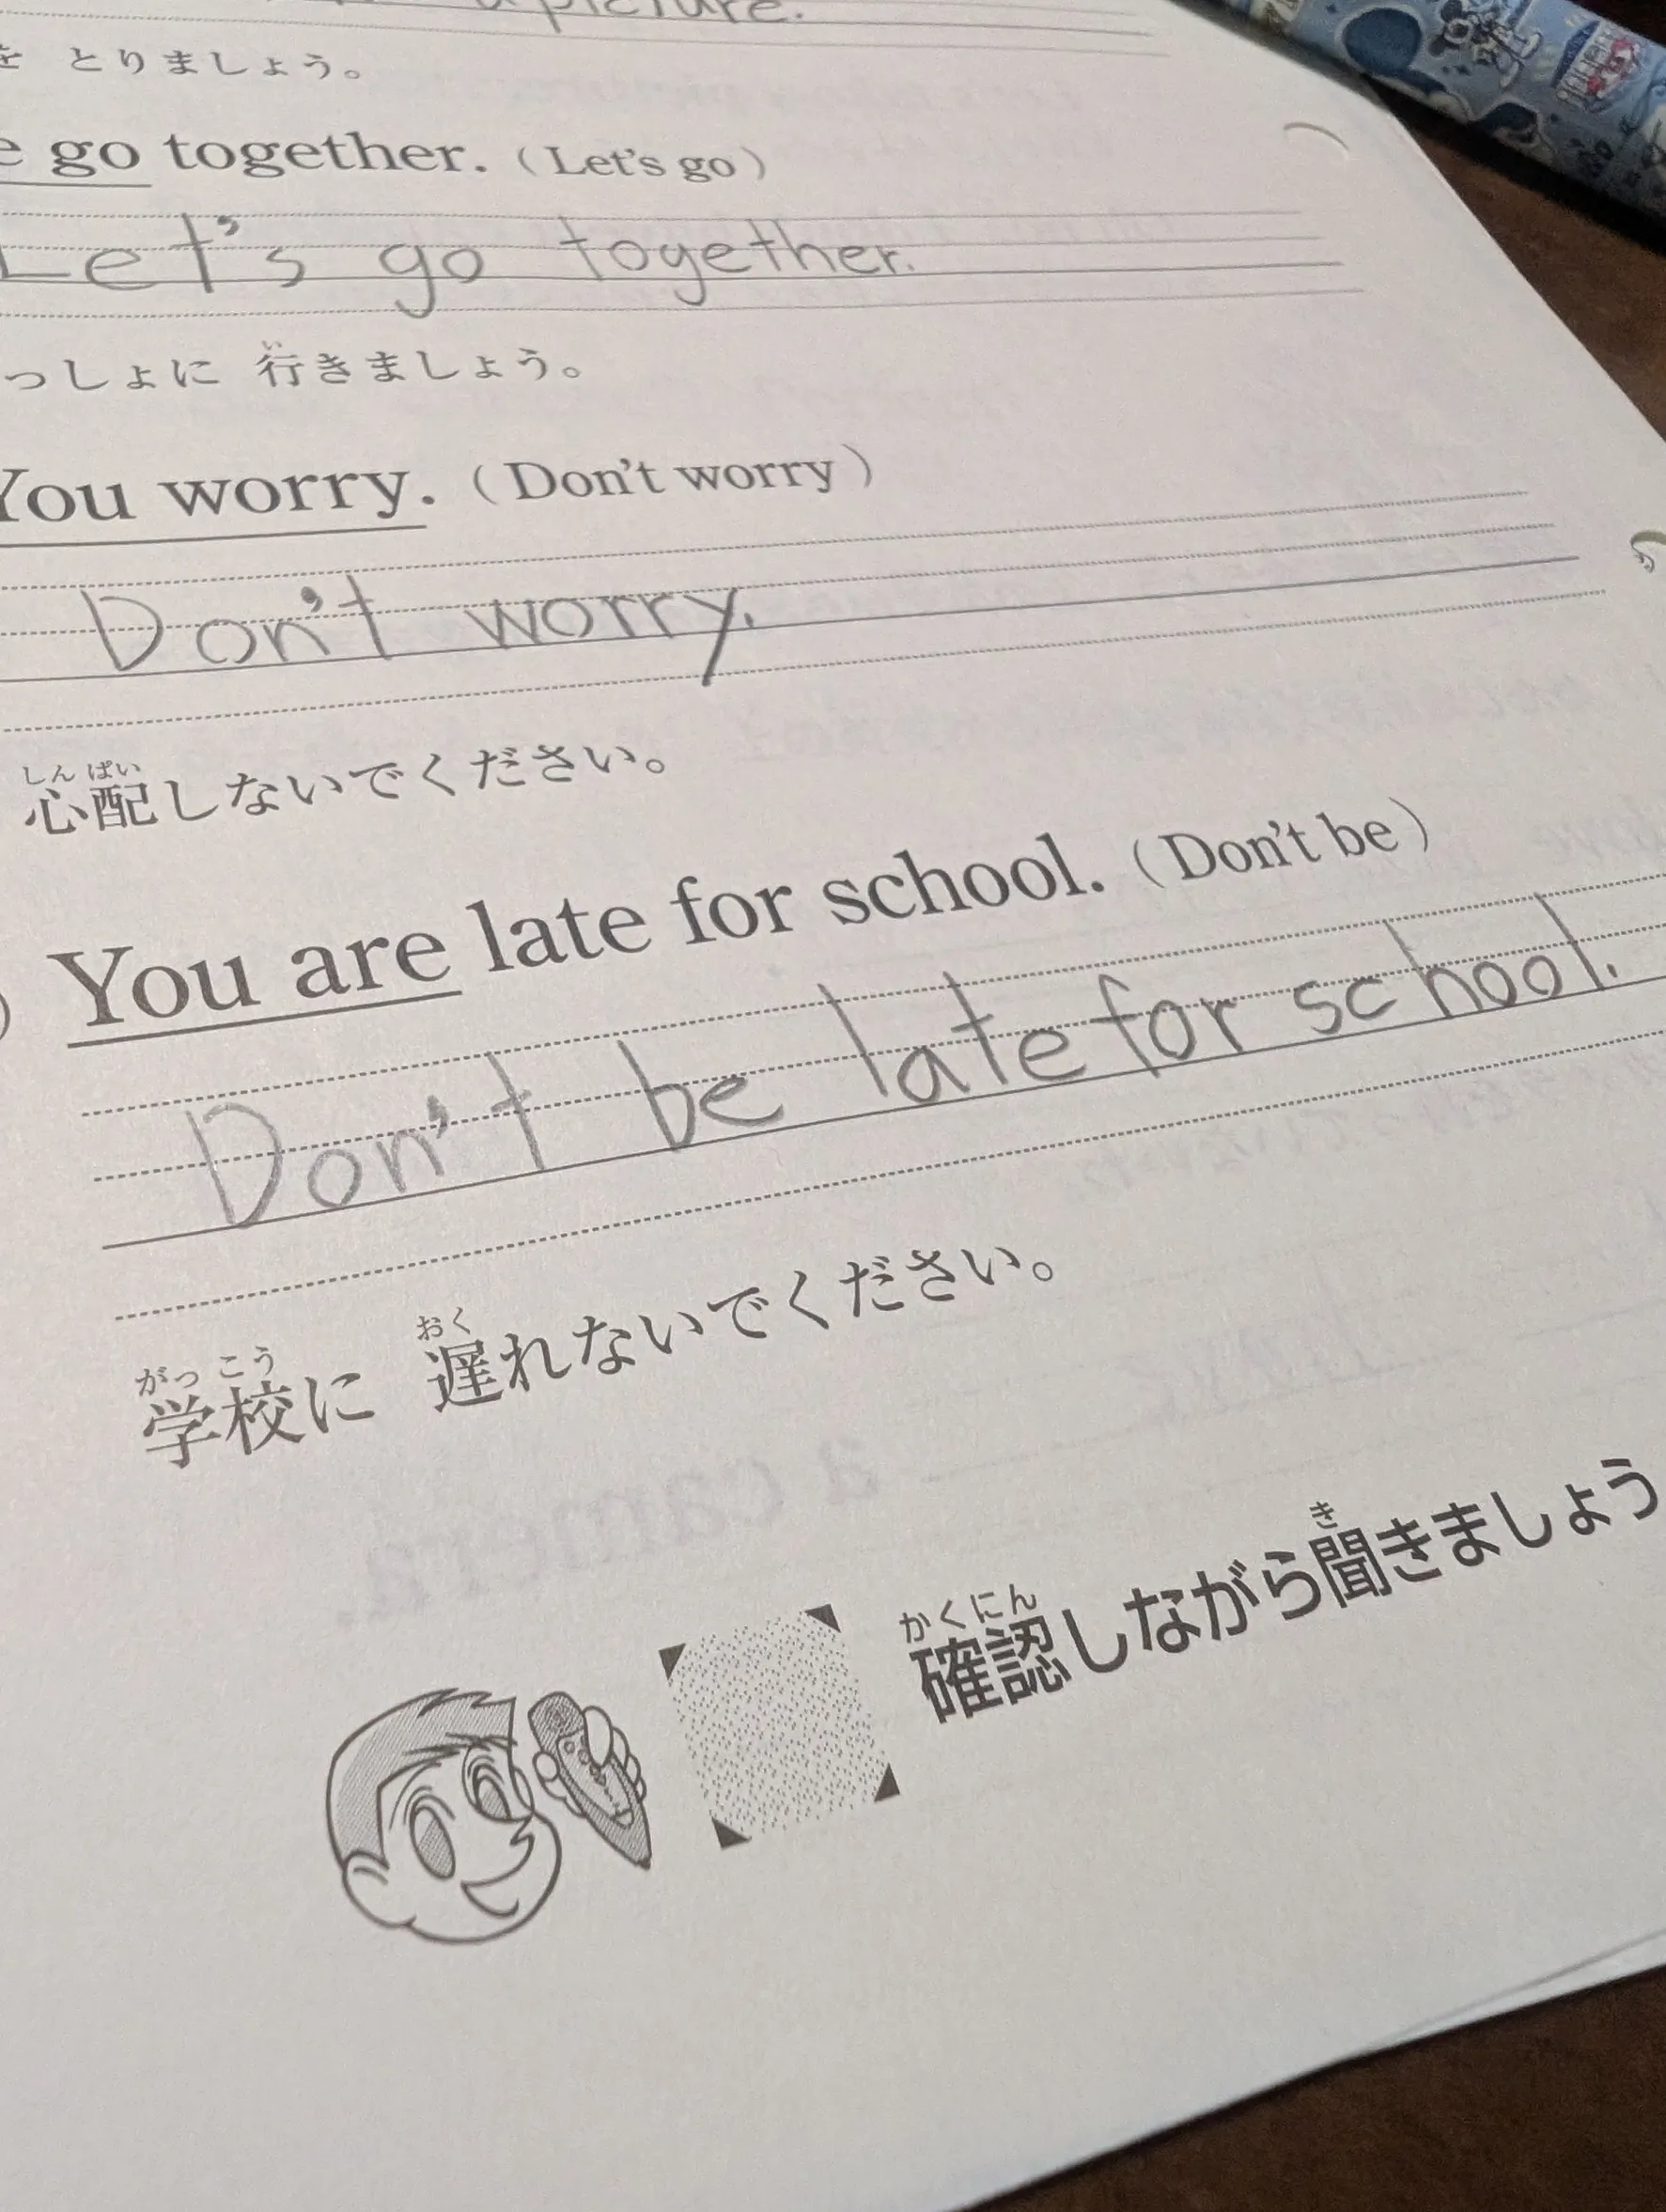 a picture.
を とりましょう。
e go together. (Let's go)
Let's go together.
っしょに 行きましょう。
You worry. (Don't worry)
Don't worry.
心配しないでください。
You are late for school. (Don't be)
Don't be late for school.
学校に 遅れないでください。
確認しながら聞きましょう